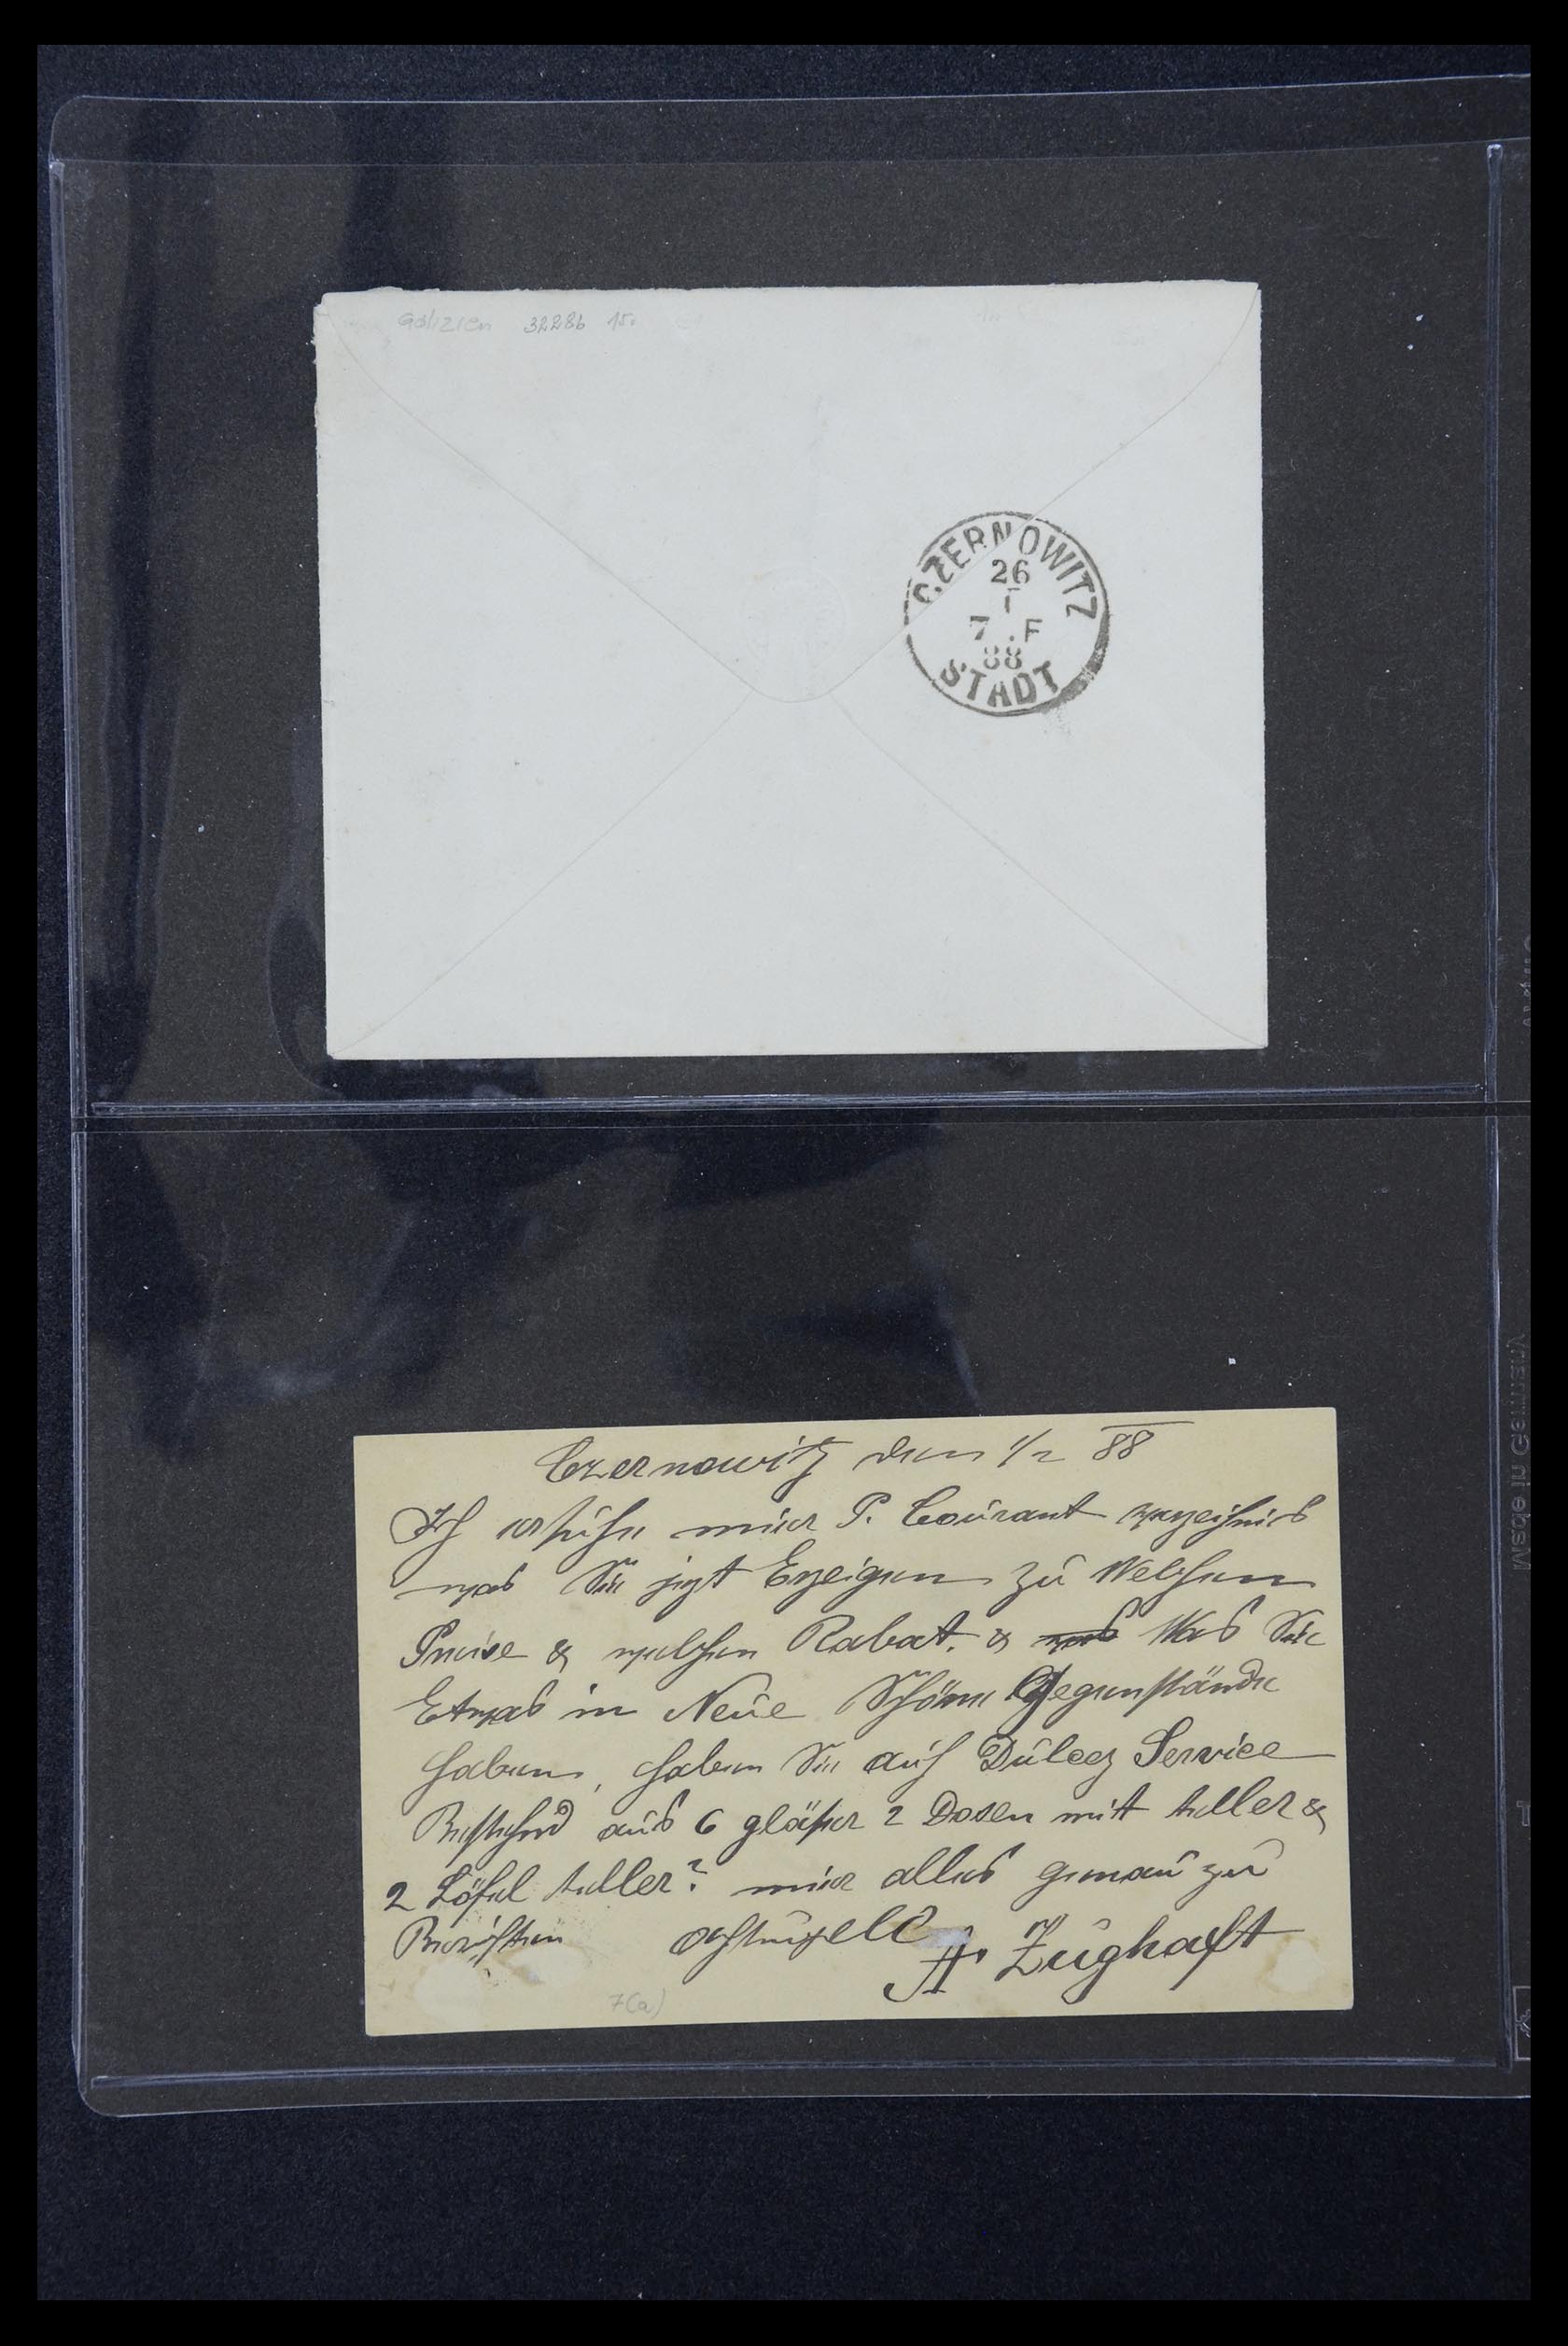 Galizien 3228b 150
CZERNOWITZ
26
1
7 .F
88
STADT
Czernowitz den 1/2 88
Ich ersuche mier P. Courant
was Sie jezt Erzeigen zu Welchen
Preise & welchen Rabat. & was Was Sie
Etwas in Neue Schöne Gegenstände
haben, haben Sie auch Dulcez Service
Bestehend aus 6 gläser 2 Dosen mitt teller &
2 Löfel teller? mier alles genau zu
Berichten
A. Zughaft
7(a)
Made in Germany